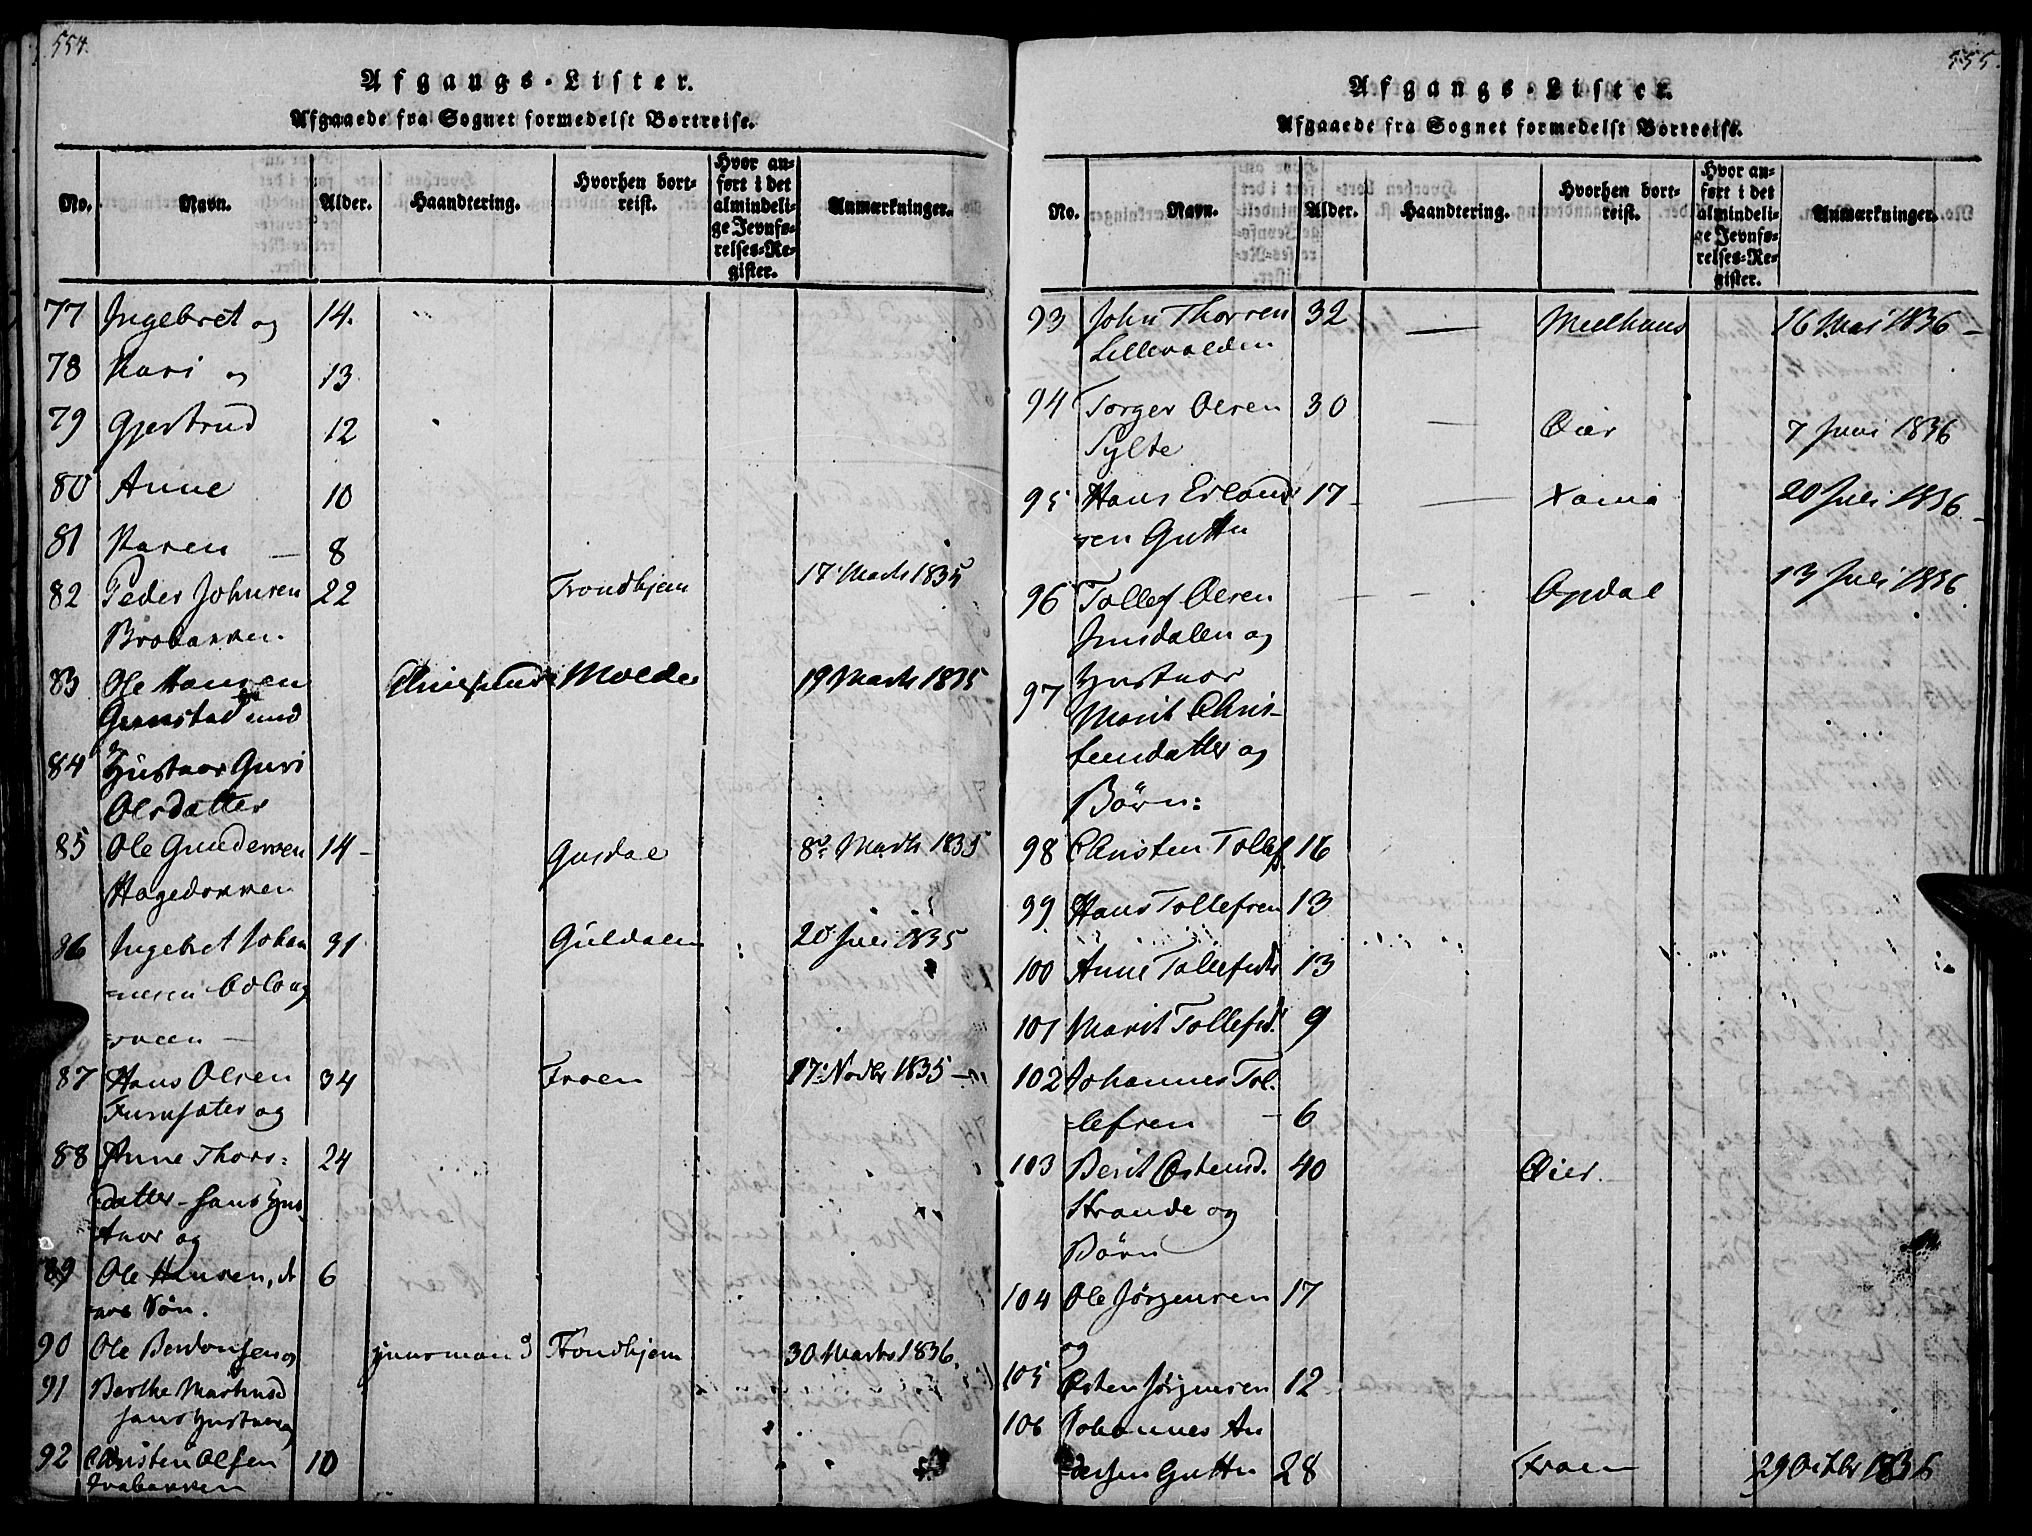 554.
Afgangs-Lister.
Afgaaede fra Sognet formedelst Bortreise.
No. Navn. Alder. Haandtering. Hvorhen bortreist. Hvor anført i det almindelige Jevnførelses-Register. Anmærkninger.
77 Ingebret og 14.
78 Kari og 13
79 Gjertrud 12
80 Anne 10
81 Karen 8
82 Peder Johnsen 22 Trondhjem 17 Marts 1835
Brobakken.
83 Ole Hansen Molde 19 Marts 1835
84 Hustrue Guri
Olsdatter
85 Ole Gundersen 14 Gusdal 8de Marts 1835
Hagebakken
86 Ingebret Johan 31 Guldalen 20 Juli 1835
=nesen
87 Hans Olsen 34 Froen 17 Novbr 1835 —
Furusæter og
88 Anne Thors= 24
datter - hans Hus-
truer og
89 Ole Hansen, de 6
=res Søn.
90 Ole Huusmand Trondhjem 30 Marts 1836.
91 Berthe
hans Hustrue
92 Christen Olsen 10
555.
Afgangs-Lister.
Afgaaede fra Sognet formedelst Bortreise.
No. Navn. Alder. Haandtering. Hvorhen bortreist. Hvor anført i det almindelige Jevnførelses-Register. Anmærkninger.
93 John Thorsen 32 — Meelhuus 16 Mai 1836 —
94 Torger Olsen 30 — Øier 7 Juni 1836
Sylte
95 Hans Erland 17 — 20 Juli 1836
=sen Guttu
96 Tollef Olsen Opdal 13 Juli 1836
Jynsdalen og
97 Hustruer
Marit Chris-
tensdatter og
Børn:
98 Christen Tollefs. 16
99 Hans Tollefsen 13
100 Anne Tollefsdr 13
101 Marit Tollefsd. 9
102 Johannes Tol-
=lefsen 6
103 Berit Østensd. 40 Øier.
Strande og
Børn
104 Ole Jørgensen 17
og
105 Østen Jørgensen 12
106 Johannes An
=dersen Guttu 28 Froen 29 Octbr 1836